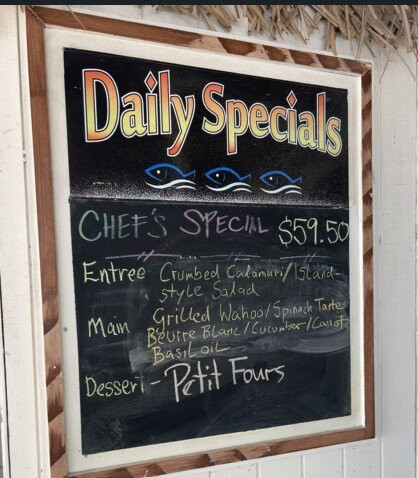 Daily Specials
CHEF'S SPECIAL $59.50
Entree Crumbed Calamari/Island-
style Salad
Main Grilled Wahoo/Spinach Tarte
Beurre Blanc/Cucumber/Carrot
Basil oil
Dessert - Petit Fours